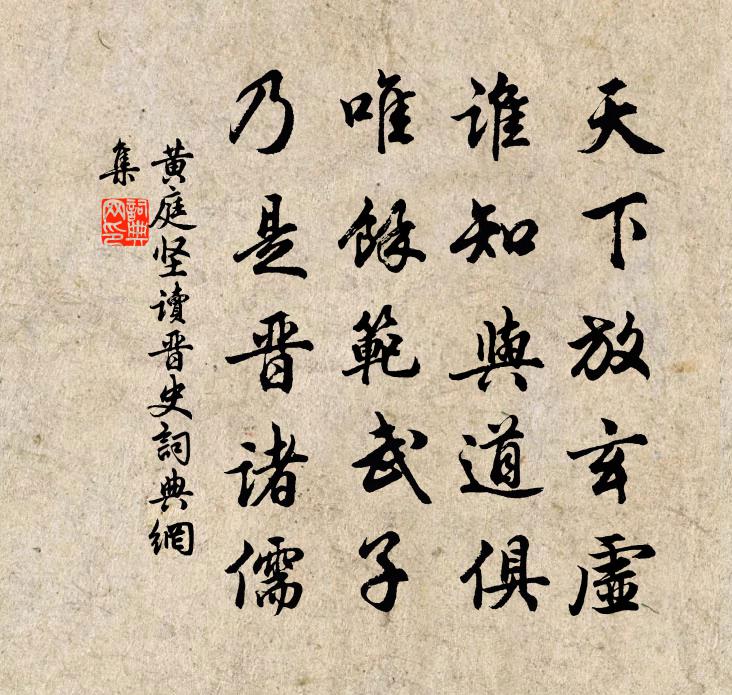 天下放玄虛
誰知與道俱
唯餘範武子
乃是晋諸儒
黄庭坚讀晋史詞典網
集
詞典網印